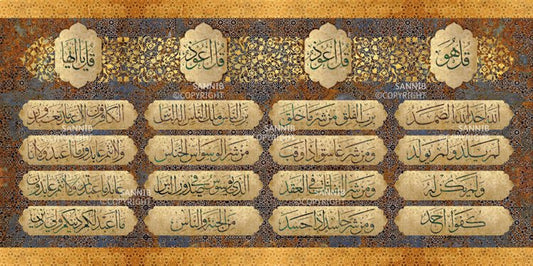 قل هو
قل اعوذ
قل اعوذ
قل يا ايها
الله احد الله الصمد
لم يلد ولم يولد
ولم يكن له
كفوا احد
برب الفلق من شر ما خلق
ومن شر غاسق اذا وقب
ومن شر النفاثات في العقد
ومن شر حاسد اذا حسد
برب الناس ملك الناس اله الناس
من شر الوسواس الخناس
الذي يوسوس في صدور الناس
من الجنة والناس
الكافرون لا اعبد ما تعبدون
ولا انتم عابدون ما اعبد ولا انا
عابد ما عبدتم ولا انتم عابدون
ما اعبد لكم دينكم ولي دين
SANNIB
©COPYRIGHT
SANNIB
©COPYRIGHT